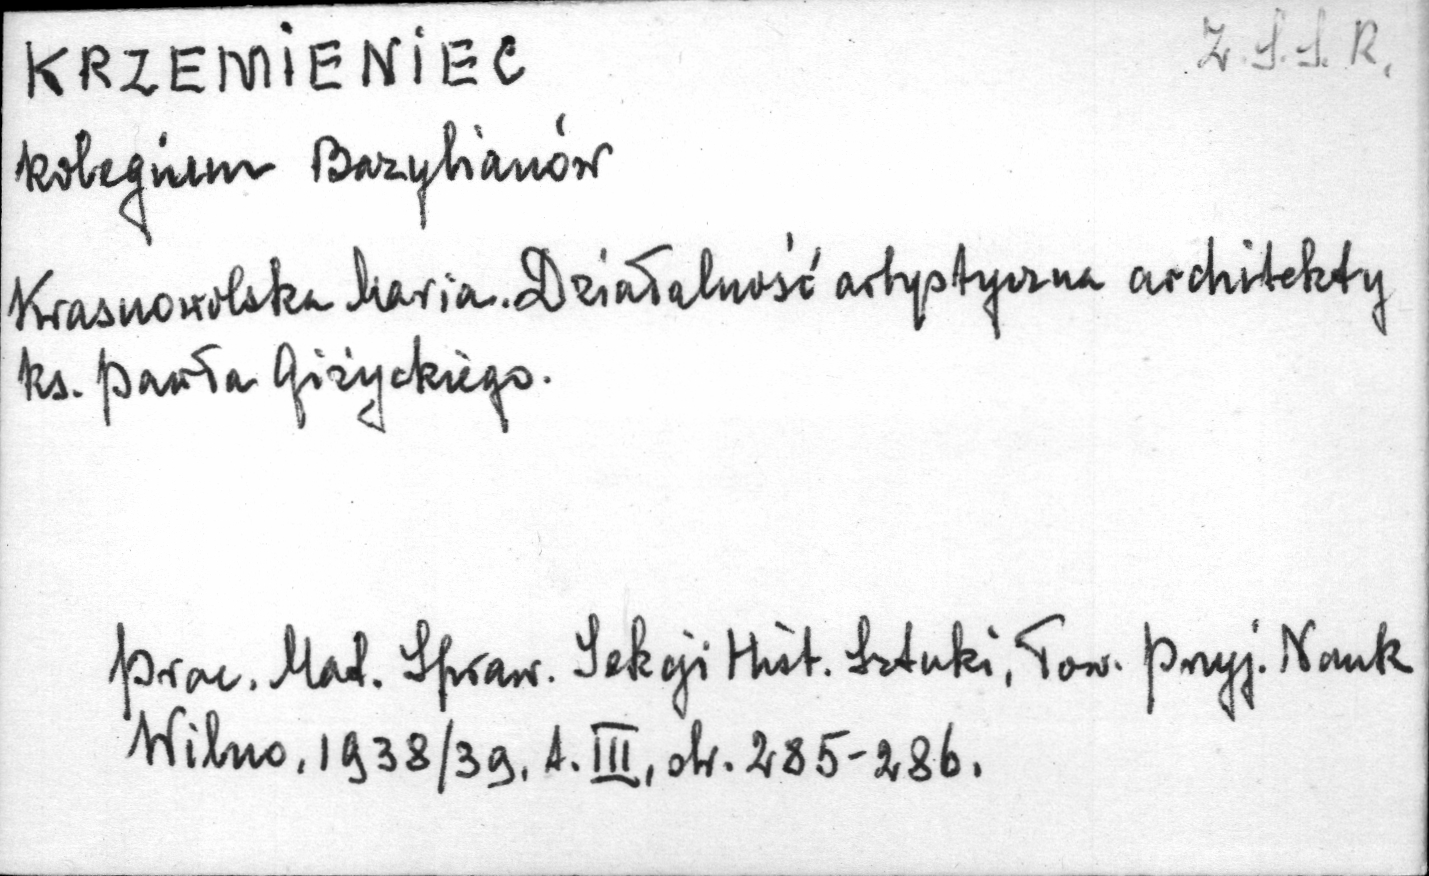 KRZEMIENIEC
Z.S.S.R.
kolegium Bazylianów
Krasnowolska Maria. Działalność artystyczna architekty
ks. Pawła Giżyckiego.
Prac. Mat. Spraw. Sekcji Hist. Sztuki, Tow. Przyj. Nauk
Wilno, 1938/39, t. III, str. 285-286.